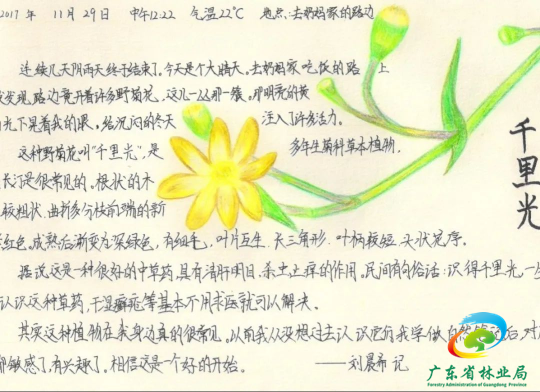 2017年 11月29日 中午12:22 气温22℃ 地点:去奶奶家的路边
连续几天阴雨天终于结束了。今天是个大晴天。去奶奶家吃饭的路上
发现路边竟开着许多野菊花，这儿一丛那一簇。那明亮的黄
光下晃着我的眼。给沉闷的冬天 注入了许多活力。
这种野菊花叫“千里光”，是 多年生菊科草本植物，
我们这是很常见的。根状的木
较粗状，曲折多分枝前端的新
红色，成熟后渐变为深绿色，有细毛，叶片互生，长三角形，叶柄较短，头状花序。
据说这是一种很好的中草药，具有清肝明目、杀虫止痒的作用。民间有句俗话：识得千里光，一
认识这种草药，干湿癣疮等基本不用求医就可以解决。
其实这种植物在我身边真的很常见。以前我从没想过去认识它们我学做自然笔记后，对
都敏感了，有兴趣了。相信这是一个好的开始。 ——刘晨希 记
千里光
广东省林业局
Forestry Administration of Guangdong Province